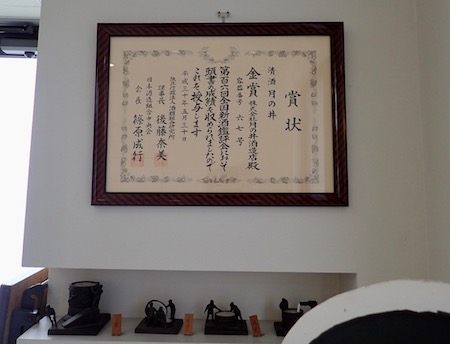 賞状
清酒 月の井
金賞 株式会社月の井酒造店殿
容器番号 六七号
第百六回全国新酒鑑評会において
頭書の成績を収められましたので
これを授与します
平成三十年五月三十日
独立行政法人酒類総合研究所
理事長 後藤奈美
日本酒造組合中央会
会長 篠原成行